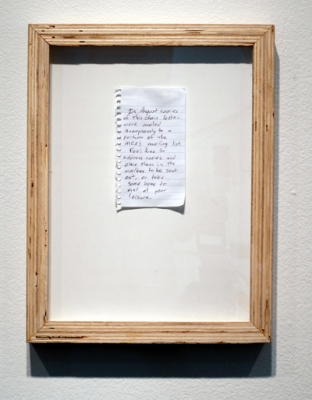 In August copies
of this chain letter
were mailed
anonymously to a
portion of the
MCA's mailing list
Feel free to
address copies and
place them in the
mailbox to be sent
out, or take
some home to
mail at your
leisure.